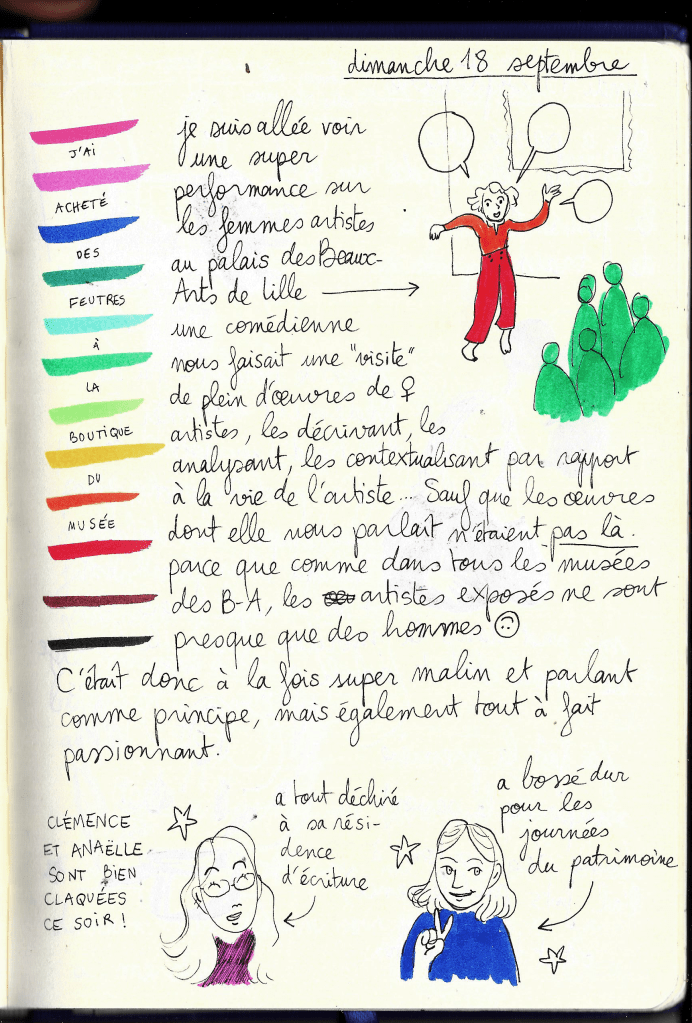 dimanche 18 septembre
J'AI
ACHETÉ
DES
FEUTRES
À
LA
BOUTIQUE
DU
MUSÉE
je suis allée voir
une super
performance sur
les femmes artistes
au palais des Beaux-
Arts de Lille
une comédienne
nous faisait une "visite"
de plein d'œuvres de ♀
artistes, les décrivant, les
analysant, les contextualisant par rapport
à la vie de l'artiste... Sauf que les œuvres
dont elle nous parlait n'étaient pas là.
parce que comme dans tous les musées
des B-A, les artistes exposés ne sont
presque que des hommes ☹
C'était donc à la fois super malin et parlant
comme principe, mais également tout à fait
passionnant.
CLÉMENCE
ET ANAËLLE
SONT BIEN
CLAQUÉES
CE SOIR !
a tout déchiré
à sa rési-
dence
d'écriture
a bossé dur
pour les
journées
du patrimoine